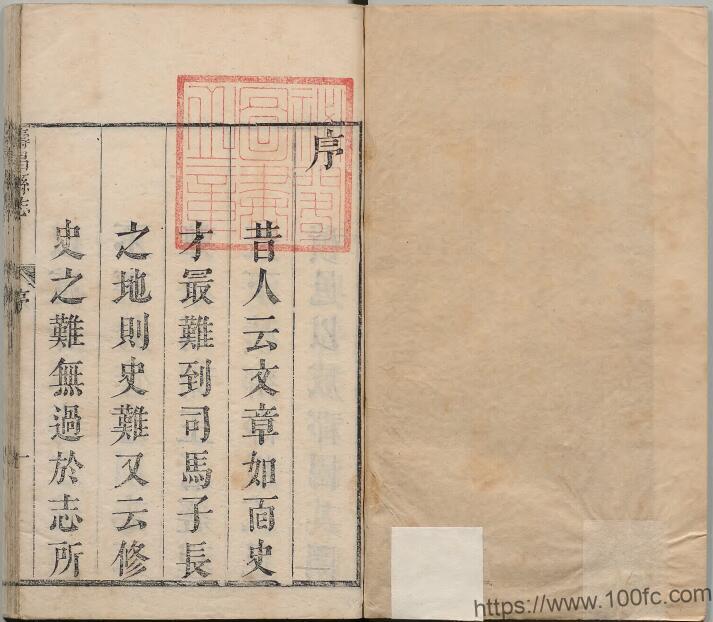 序
昔人云文章如面史
才最難到司馬子長
之地則史難又云修
史之難無過於志所
壽昌縣志
序
https://www.100fc.com